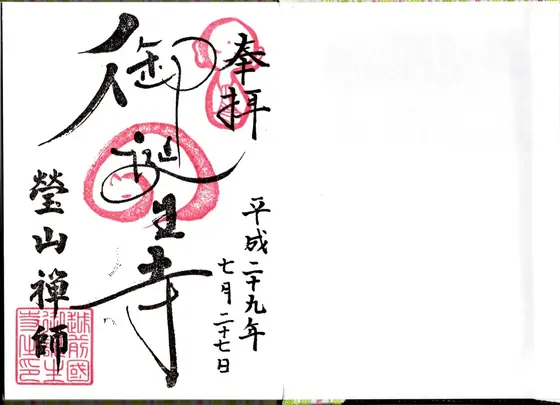 奉拝
平成二十九年
七月二十七日
御誕生寺
瑩山禅師
越前國
御誕生
寺之印